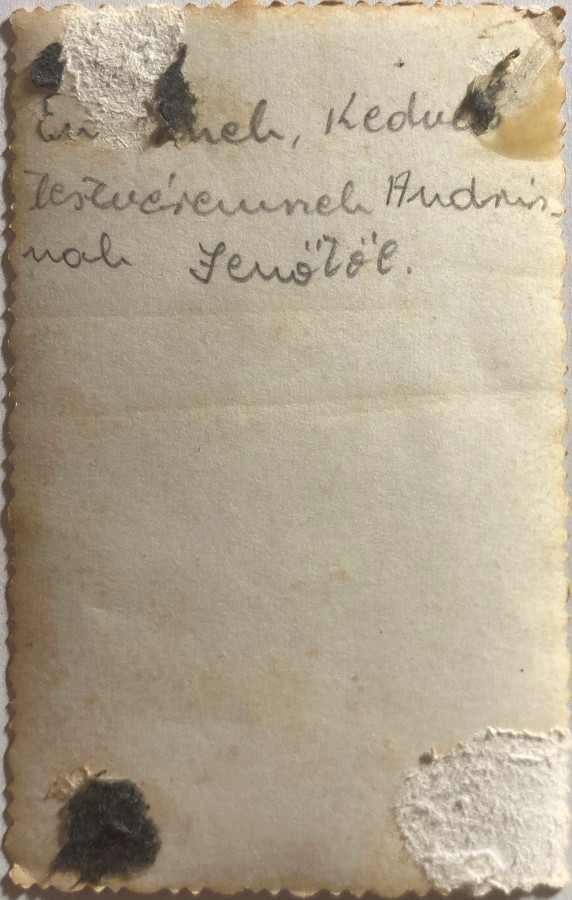 kedves
testvéremnek Andris-
nak Jenőtől.